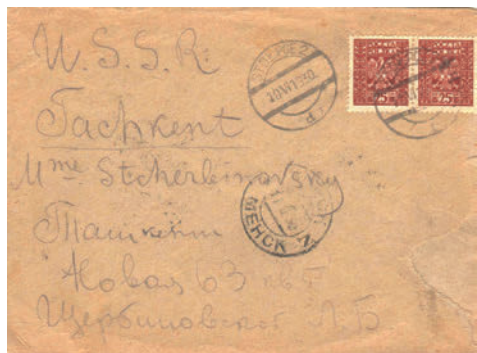 W. S. S. R.
Tachkent
Mme Stcherbinovsky
Ташкент
Новая 63 кв 5
Щербиновской Л. Б
25
25
МЕНСК